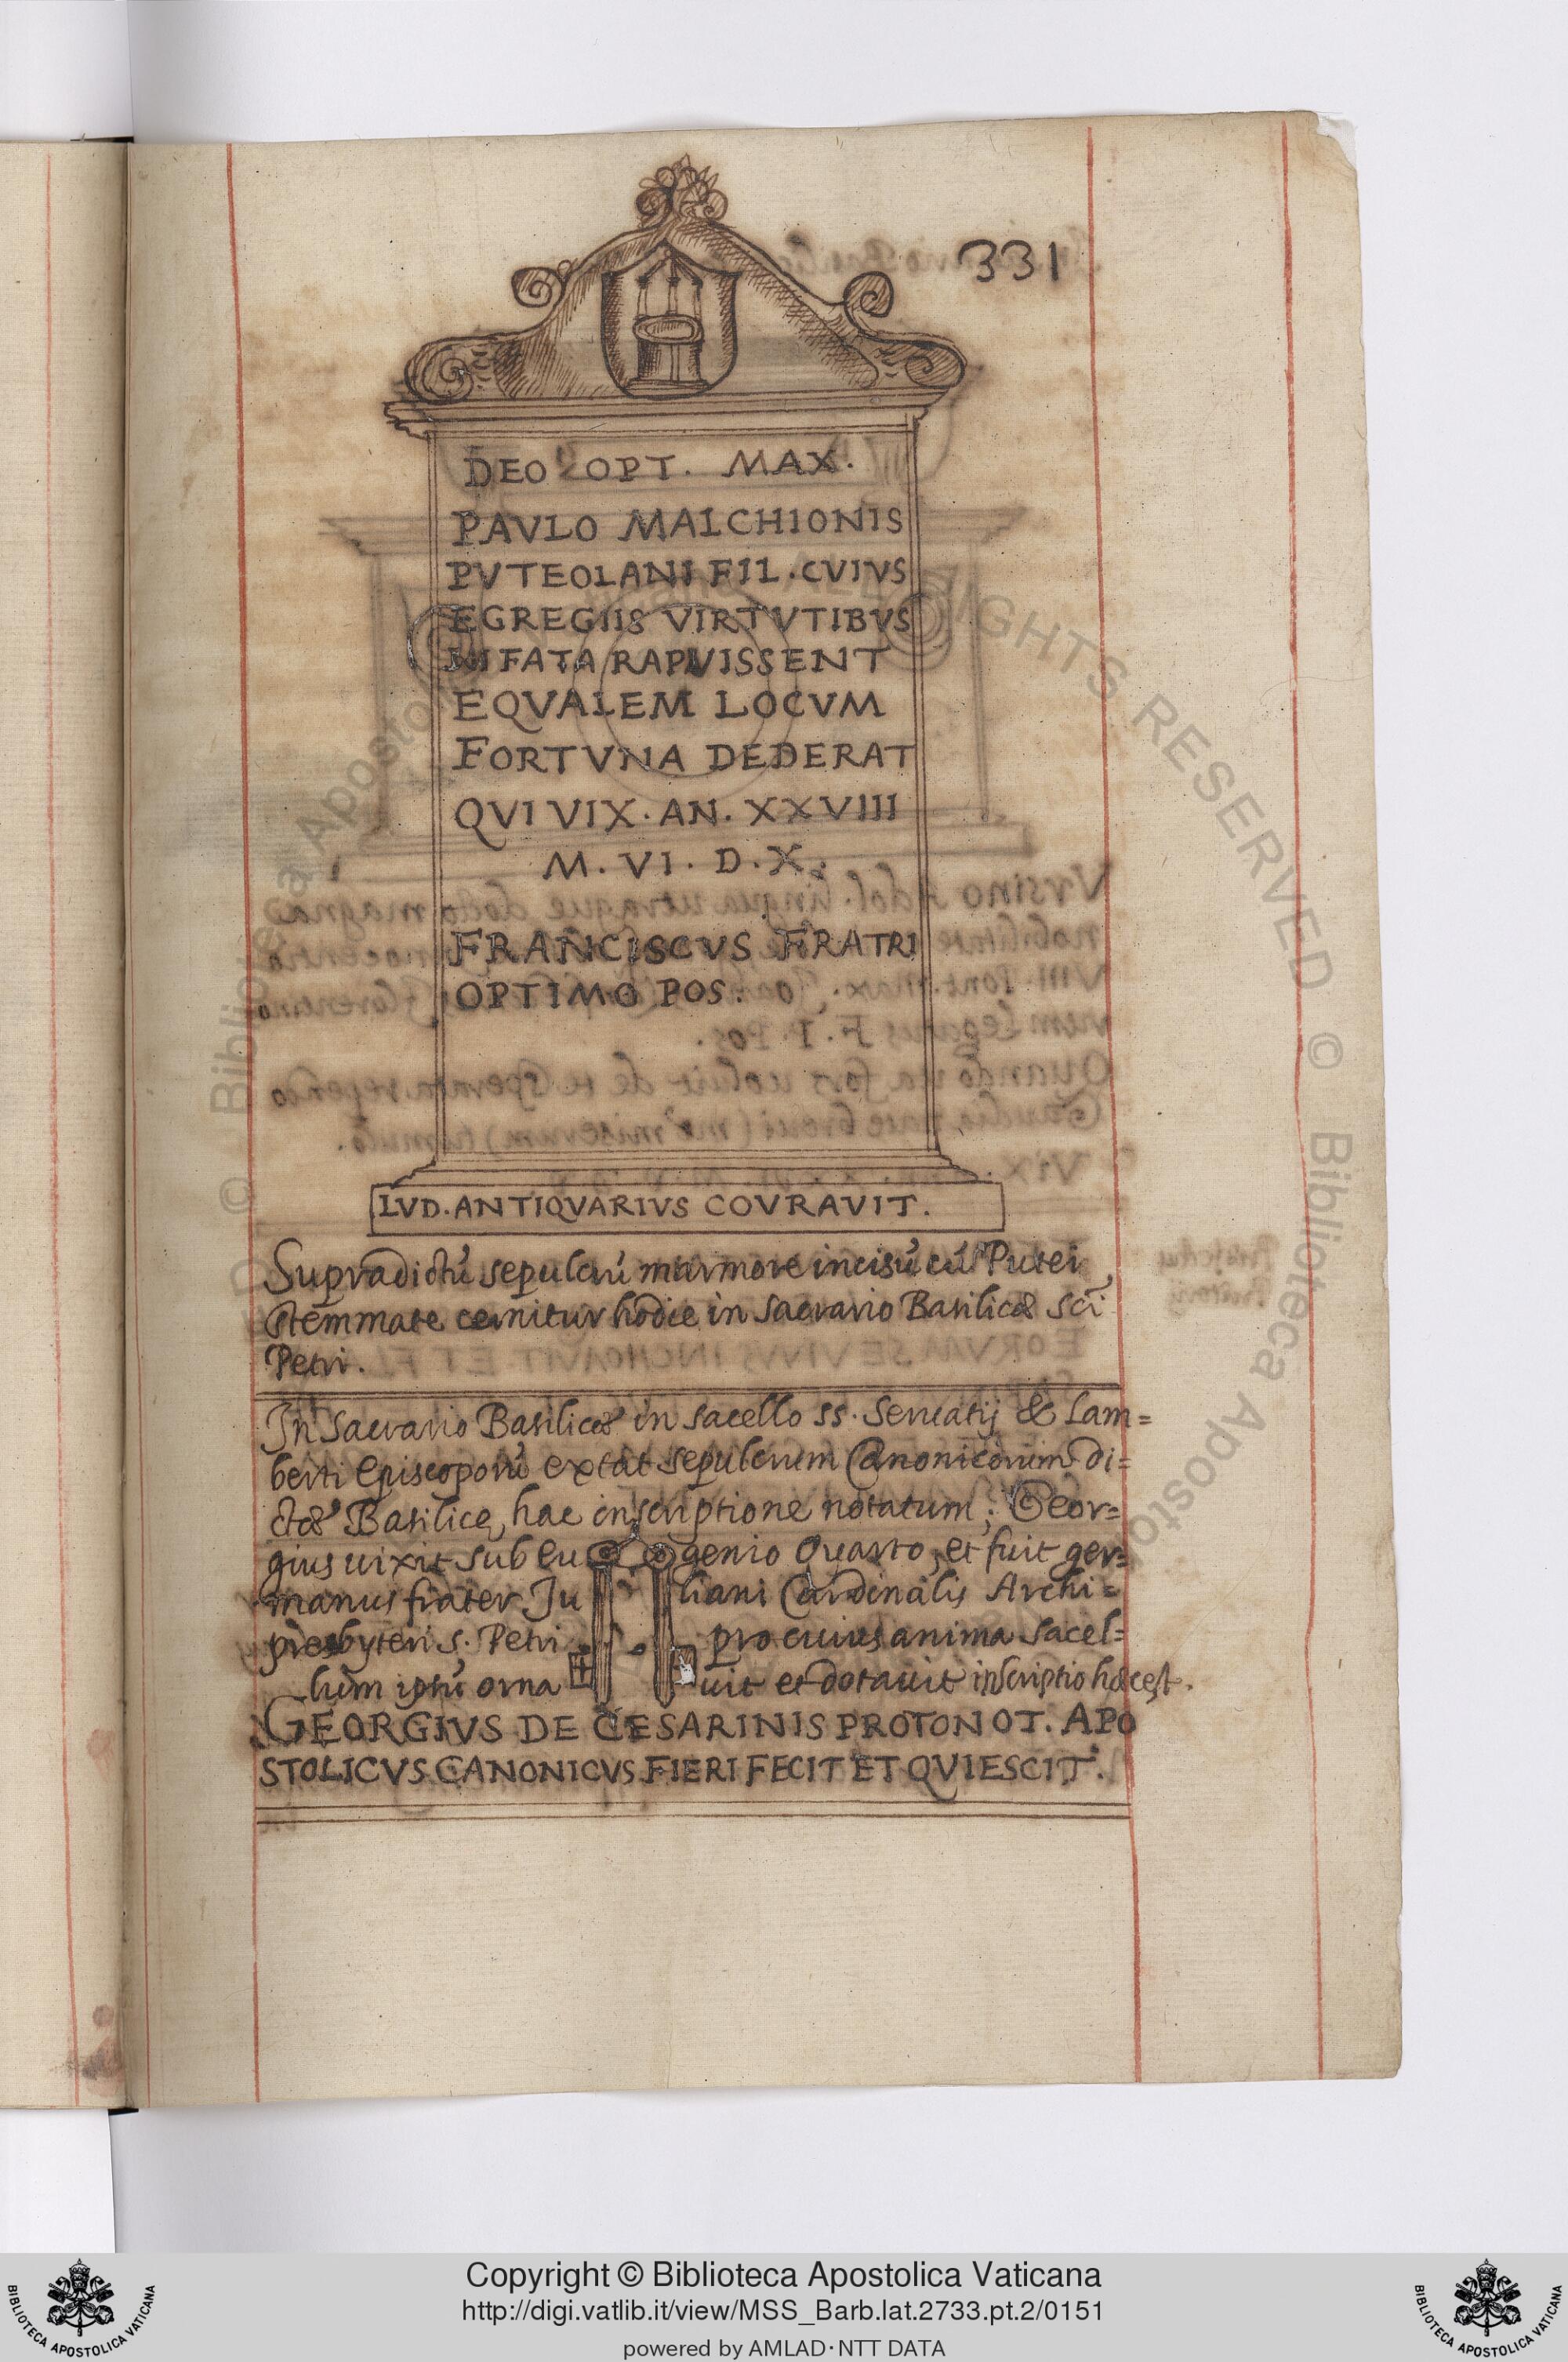 331
DEO OPT. MAX.
PAVLO MALCHIONIS
PVTEOLANI FIL. CVIVS
EGREGIIS VIRTVTIBVS
NI FATA RAPVISSENT
EQVALEM LOCVM
FORTVNA DEDERAT
QVI VIX. AN. XXVIII
M. VI. D. X.
FRANCISCVS FRATRI
OPTIMO POS.
LVD. ANTIQVARIVS COVRAVIT.
Supradictú sepulcrú marmore incisú cú Putei
stemmate cernitur hodie in sacrario Basilicæ sci
Petri.
In sacrario Basilicæ in sacello ss. Servatij & Lam=
berti Episcoporú extat sepulcrum Canonicorum di=
ctæ Basilice, hac inscriptione notatum; Geor=
gius uixit sub Eugenio Quarto, et fuit ger=
manus frater Juliani Cardinalis Archi=
presbyteri s. Petri pro cuius anima sacel=
lum iptú ornauit et dotauit inscriptio hæc est.
GEORGIVS DE CESARINIS PROTONOT. APO
STOLICVS CANONICVS FIERI FECIT ET QVIESCIT.
Copyright © Biblioteca Apostolica Vaticana
http://digi.vatlib.it/view/MSS_Barb.lat.2733.pt.2/0151
powered by AMLAD·NTT DATA
BIBLIOTECA APOSTOLICA VATICANA
BIBLIOTECA APOSTOLICA VATICANA